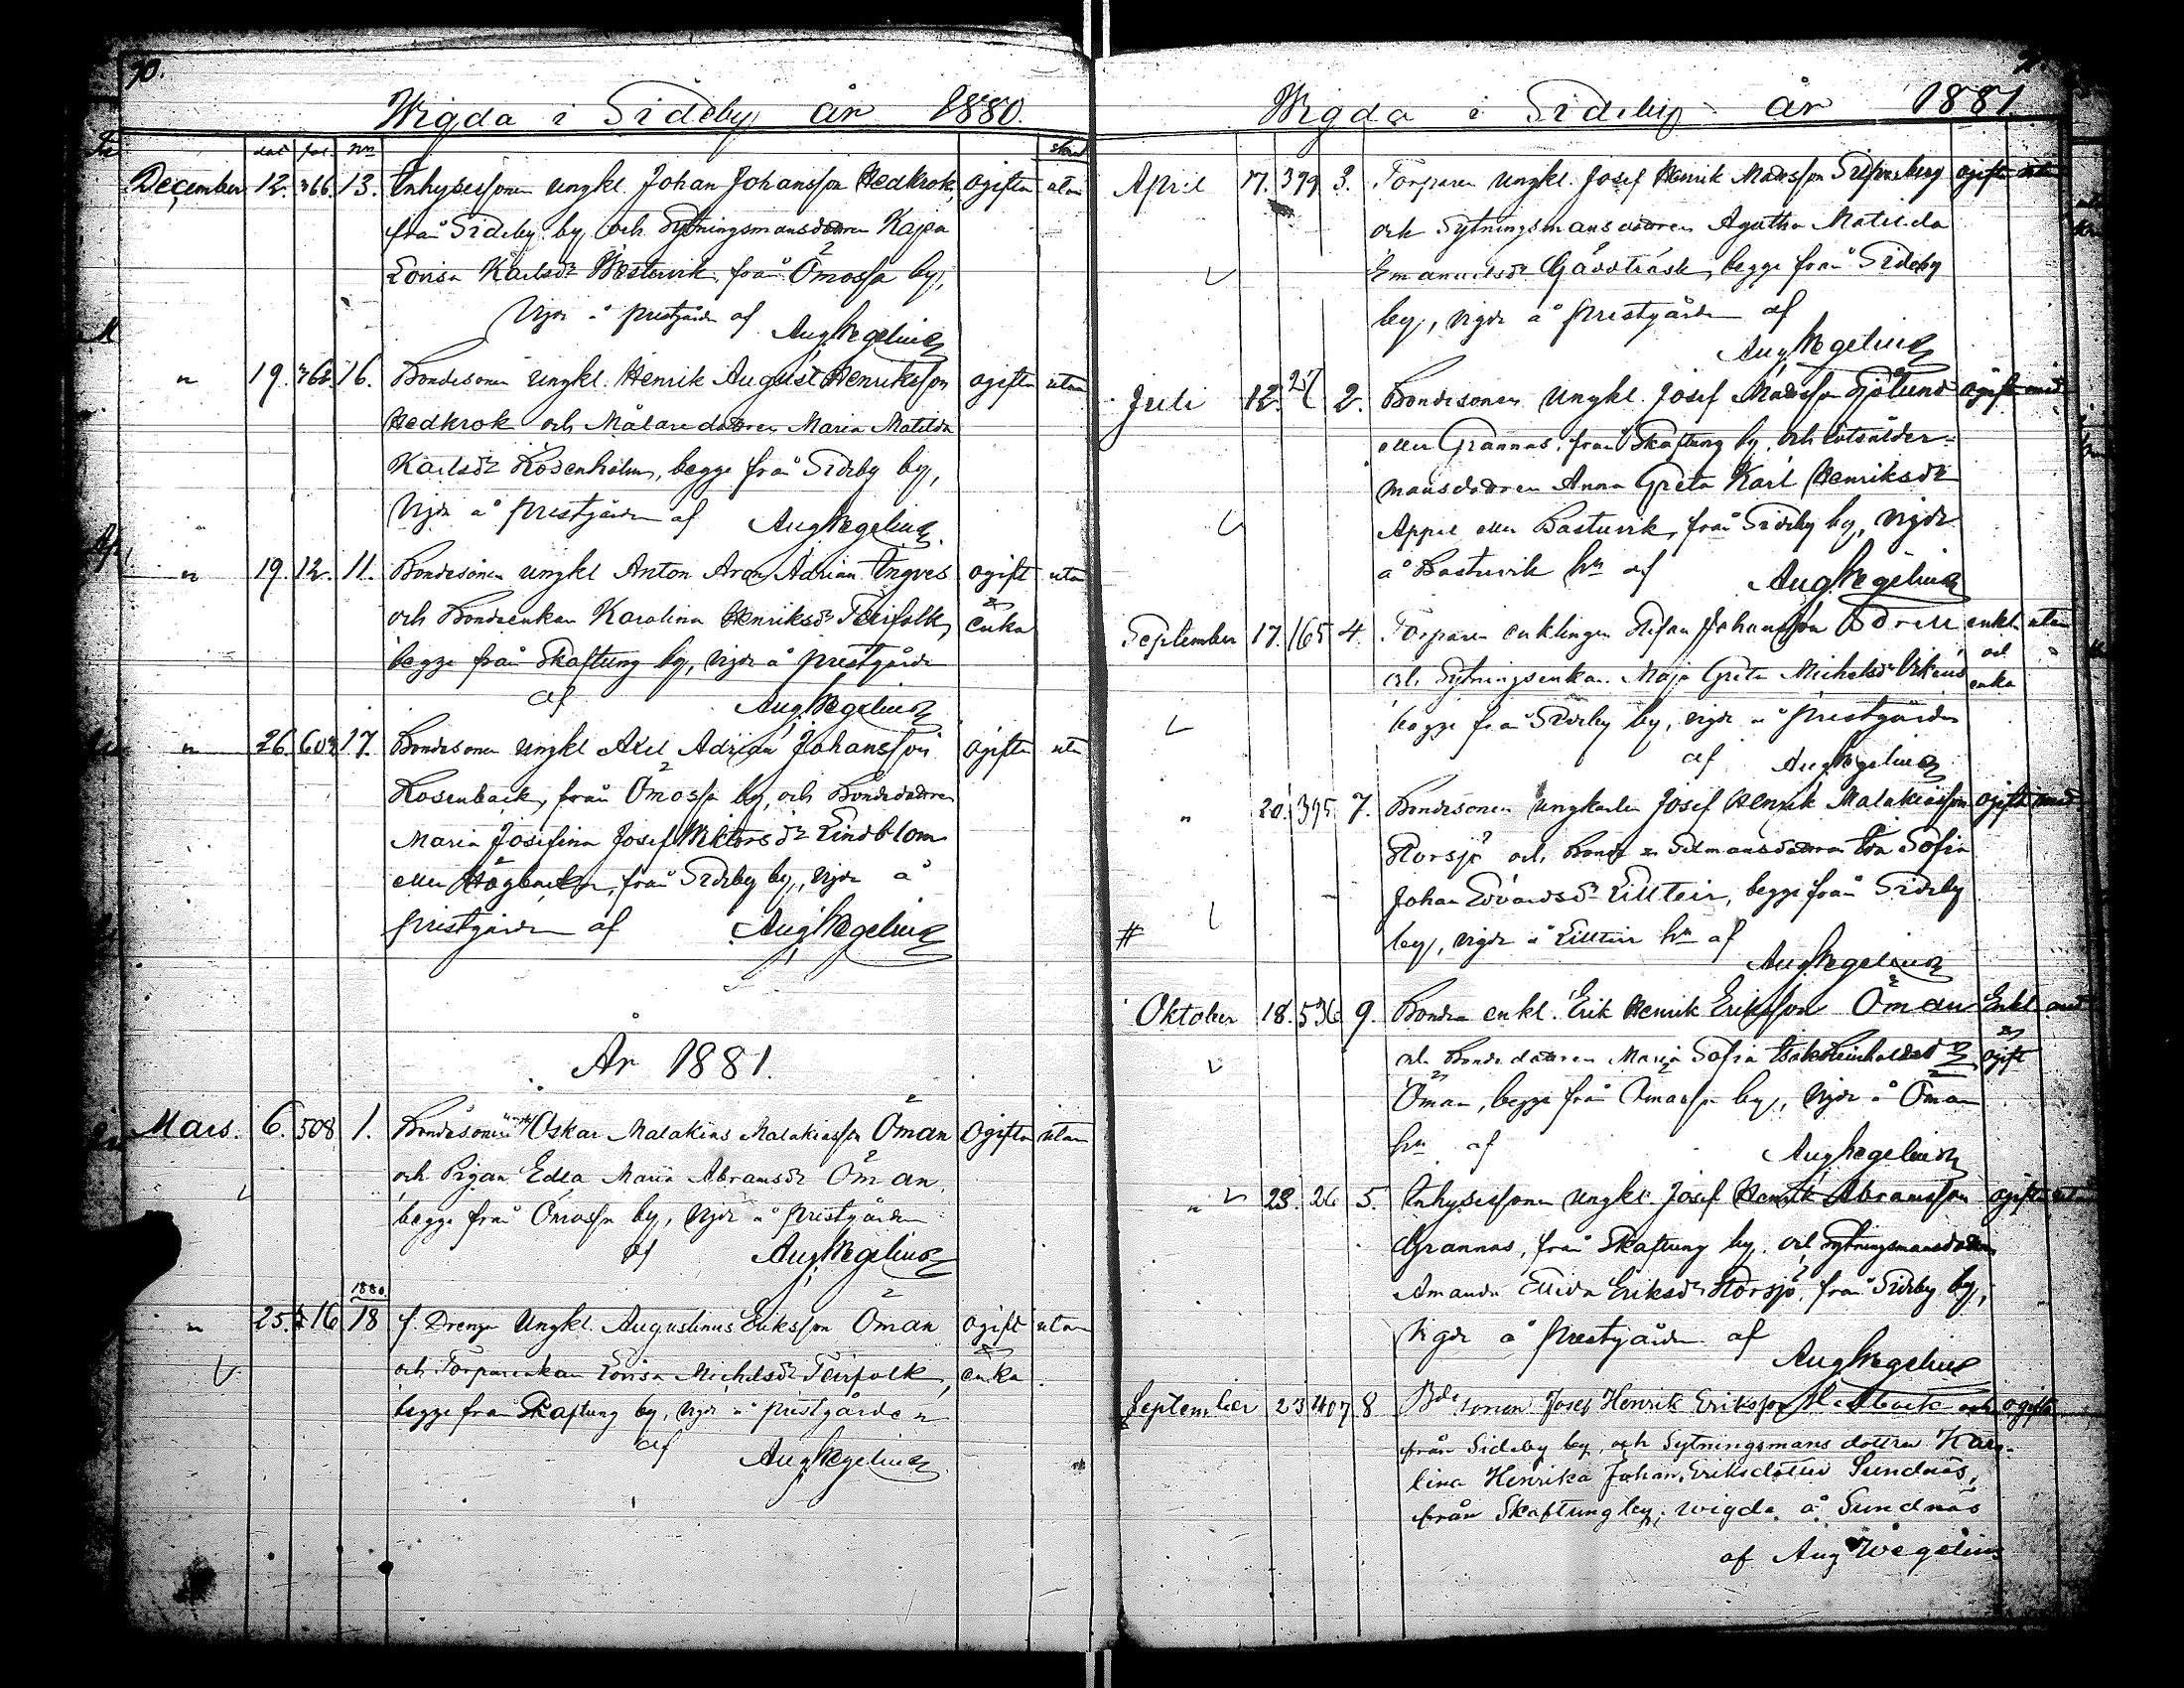 70.
Wigda i Sideby år 1880.
dat fol. No
December 12. 366. 13. Inhysessonen ungkl. Johan Johansson Hedkrok, ogifta utan
från Sideby by och Sytningsmansdottren Kajsa
Lovisa Karlsdr Västervik från Ömossa by,
Vigde å prestgården af
Aug Wegelius
" 19. 368. 16. Bondesonen ungkl. Henrik August Henriksson ogifta utan
Hedkrok och Målaredottren Maria Matilda
Karlsdr Rosenholm, begge från Sideby by,
Vigde å prestgården af Aug Wegelius
" 19. 12. 11. Bondesonen ungkl Anton Aron Adrian Ingves ogift utan
och Bondeenkan Karolina Henriksdr Teirfolk, enka
begge från Skaftung by, vigde å prestgården
af Aug Wegelius
" 26. 17. Bondesonen ungkl Axel Adrian Johansson ogifta utan
Rosenback, från Ömossa by, och Bondedottren
Maria Josefina Josef Wiktorsdr Lindblom
eller Högback, från Sideby by, vigde å
prestgården af Aug Wegelius
År 1881.
Mars. 6. 508 1. Bondesonen ungkl Oskar Malakias Malakiasson Öman Ogifta utan
och Pigan Edla Maria Abramsdr Öman,
begge från Ömossa by, vigde å prestgården
af Aug Wegelius
1880.
" 25. 216 18 f. Drengen Ungkl. Augustinus Eriksson Öman ogift utan
och Torpareenkan Lovisa Michelsdr Teirfolk, enka
begge från Skaftung by, vigde å prestgården
af Aug Wegelius
Wigda i Sideby år 1881.
April 17. 379 3. Torparen ungkl. Josef Henrik Matsson ogifta utan
och Sytningsmansdottren Agatha Matilda
Emanuelsdr Gåddträsk, begge från Sideby
by, vigde å prestgården af
Aug Wegelius
Juli 12. 2. Bondesonen Ungkl. Josef Matsson Sjölund ogift med
eller Grannas, från Skaftung by, och Lotsålder-
mansdottren Anna Greta Karl Henriksdr
Appel eller Bastuvik, från Sideby by, vigde
å Bastuvik hn af Aug Wegelius
September 17. 165 4. Torparen enklingen Stefan Johansson enkl. utan
och Sytningsenkan Maja Greta Michelsdr och enka
begge från Sideby by, vigde å prestgården
af Aug Wegelius
" 20. 395 7. Bondesonen ungkarlen Josef Henrik Malakiasson ogift med
Storsjö och Bonde Sofia
Johan Edvardsdr Lillteir, begge från Sideby
# by, vigde å Lillteir hn af
Aug Wegelius
Oktober 18. 536 9. Bonden enkl. Erik Henrik Eriksson Öman Enkl. med
och Bondedottren Maria Sofia ogift
Öman, begge från Ömossa by, vigde å Öman
hn af Aug Wegelius
" 23. 26 5. Inhysessonen ungkl. Josef Henrik Abramsson ogifta utan
Grannas, från Skaftung by, och sytningsmansdottren
Amanda Elida Eriksdr Storsjö, från Sideby by,
vigde å prestgården af
Aug Wegelius
September 23 407 8 Bdesonen Josef Henrik Eriksson och ogifta
från Sideby by, och Sytningsmans dottren Karo-
lina Henrika Johan Eriksdotter Sundnäs,
från Skaftung by; wigda å Sundnäs
af Aug Wegelius